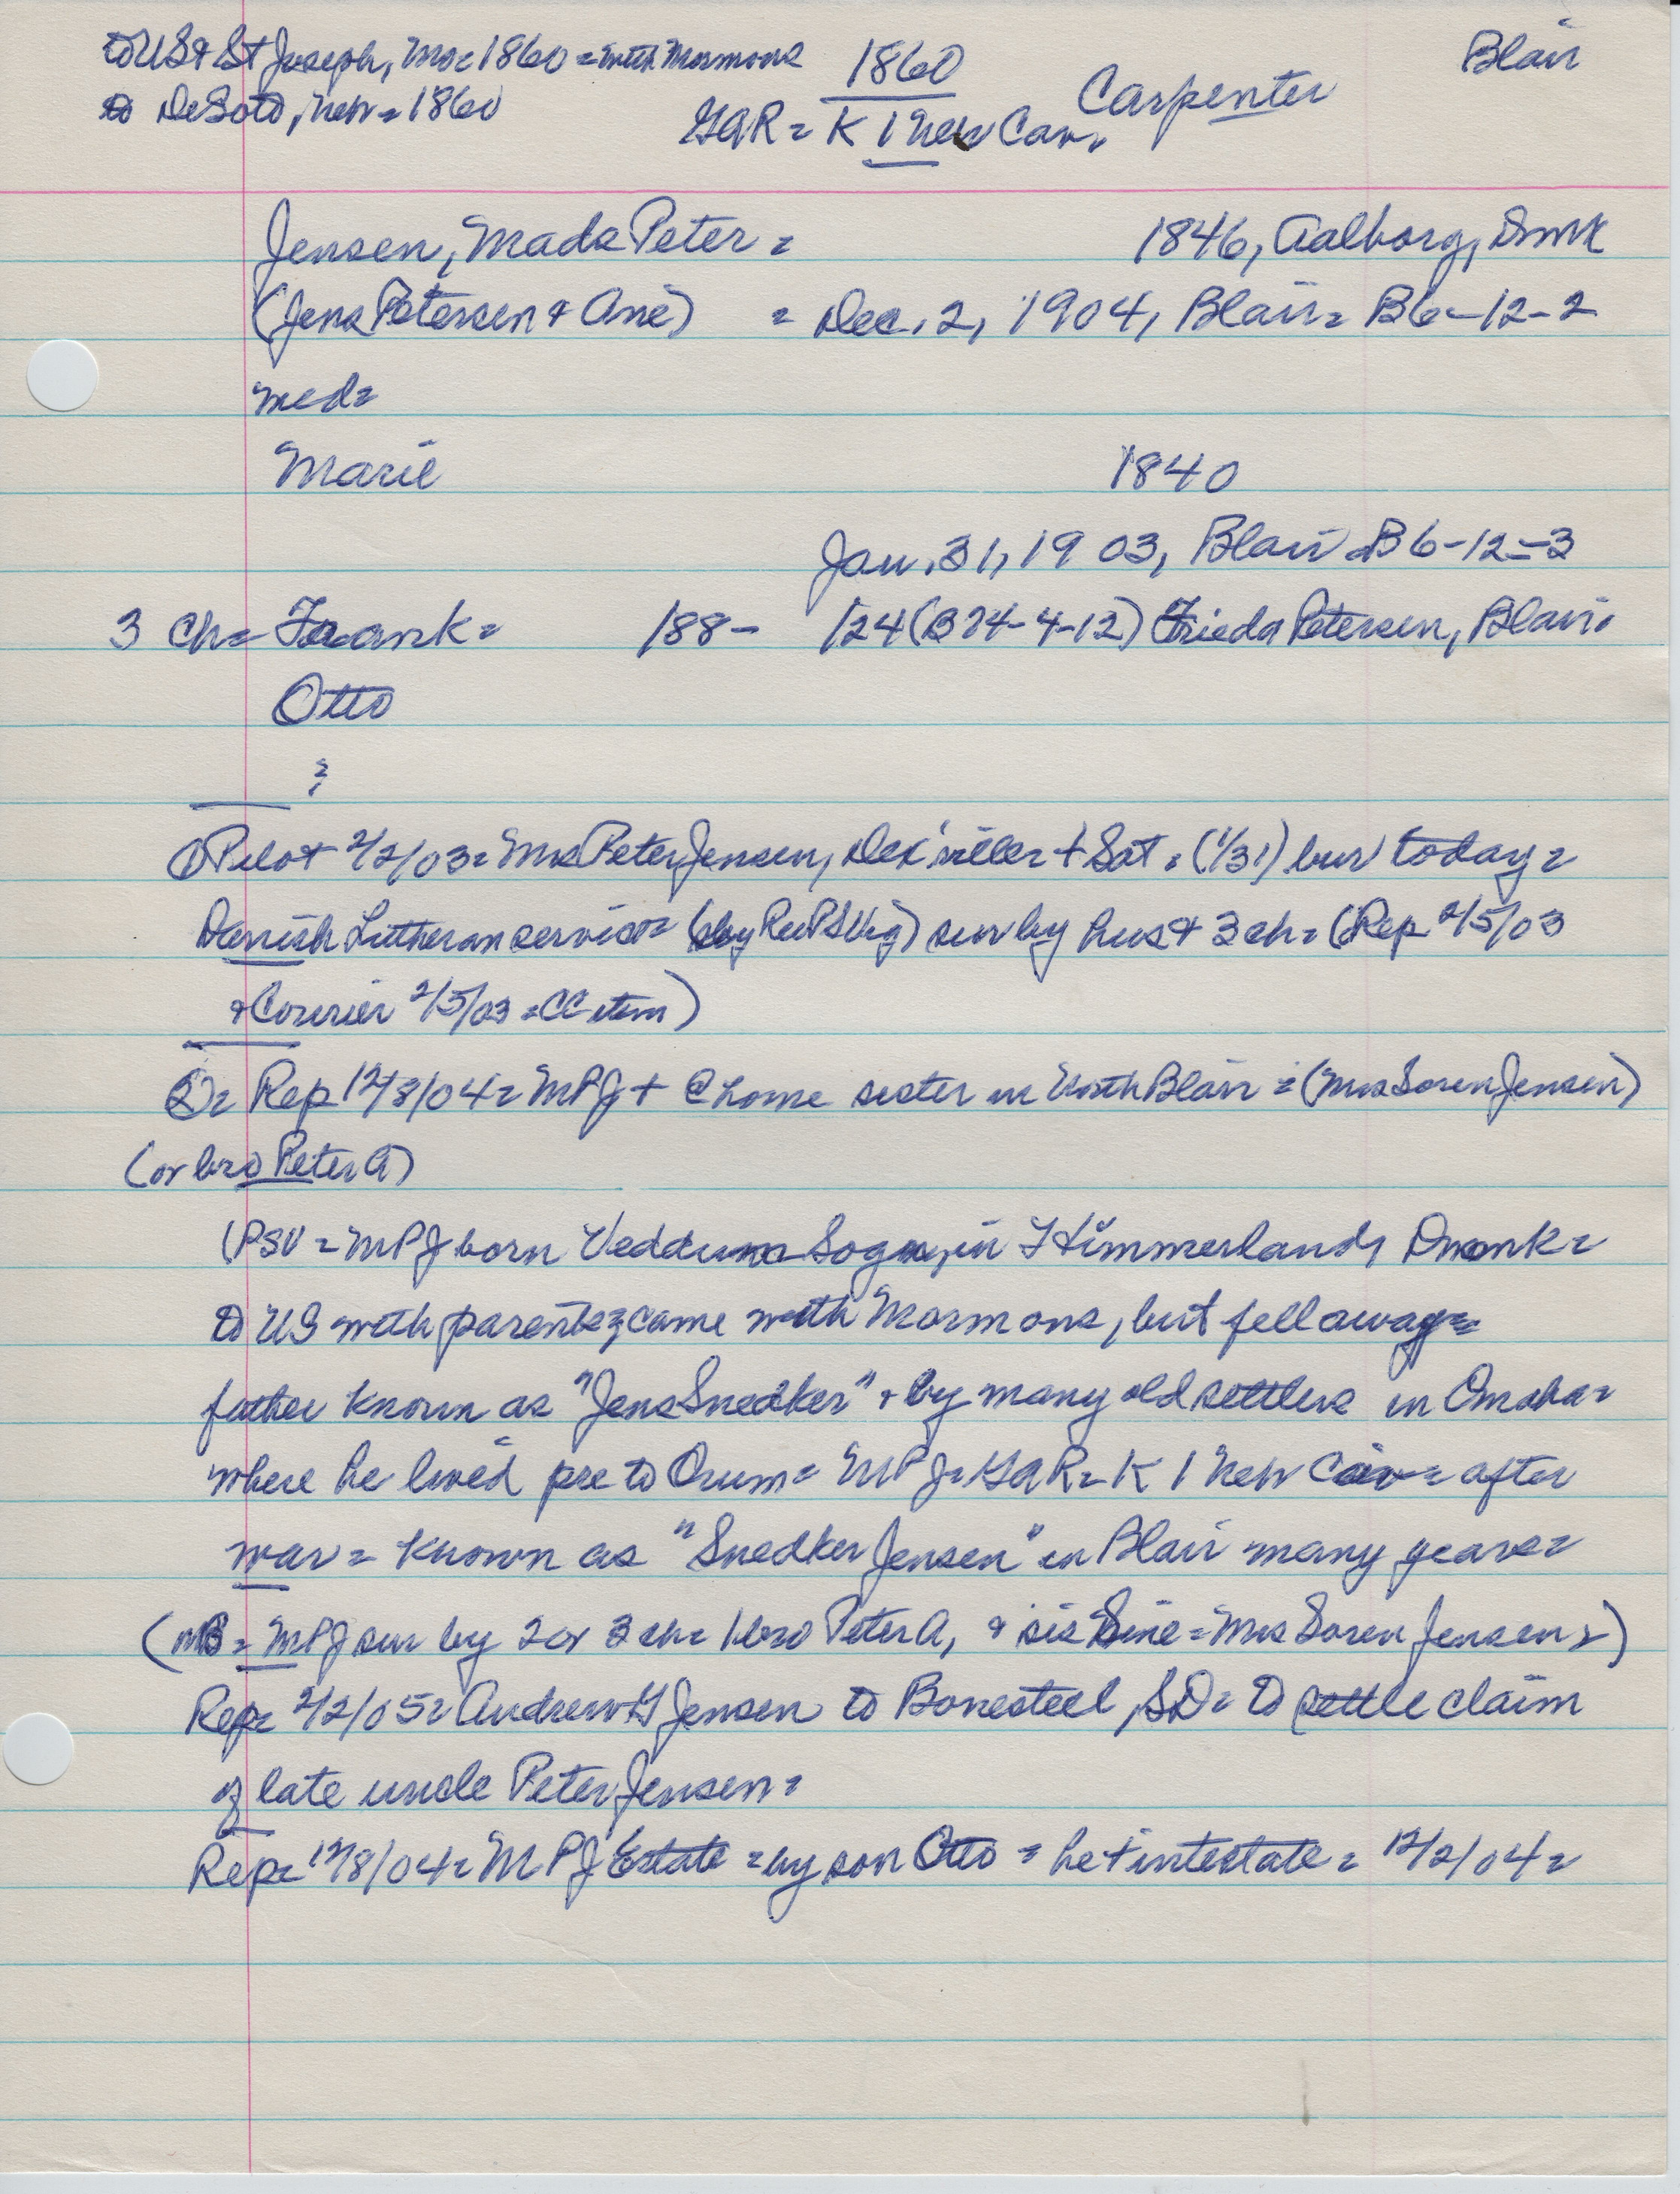 to US & St Joseph, Mo = 1860 = with Mormons
1860
Blair
to DeSoto, Neb = 1860
Carpenter
GAR = K 1 Neb Cav.
Jensen, Mads Peter =
1846, Aalborg, Dmk
(Jens Petersen & Ane) = Dec. 2, 1904, Blair = B6-12-2
med =
Marie
1840
Jan. 31, 1903, Blair = B6-12-3
3 ch = Frank = 188- /24 (B74-4-12) Frieda Petersen, Blair.
Otto
?
① Pilot 2/2/03 = Mrs Peter Jensen, Dex'ville = + Sat. (1/31) bur today =
Danish Lutheran service = (by Rev PS Vig) sur by hus + 3 ch = (Rep 2/5/03
& Courier 2/5/03 = CC item)
② = Rep 12/8/04 = MPJ + @ home sister in North Blair = (Mrs Soren Jensen)
(or bro Peter A)
(PSV = MPJ born Veddum Sogn, in Himmerland, Dmk =
to US with parents; came with Mormons, but fell away =
father known as "Jens Snedker" & by many old settlers in Omaha =
where he lived pre to Orum = MPJ = GAR = K 1 Neb Cav = after
war = known as "Snedker Jensen" in Blair many years =
(MB = MPJ sur by 2 or 3 ch = 1 bro Peter A, & sis Sine = Mrs Soren Jensen =)
Rep = 2/2/05 = Andrew G Jensen to Bonesteel, SD = to settle claim
of late uncle Peter Jensen =
Rep = 12/8/04 = MPJ Estate = by son Otto = he + intestate = 12/2/04 =